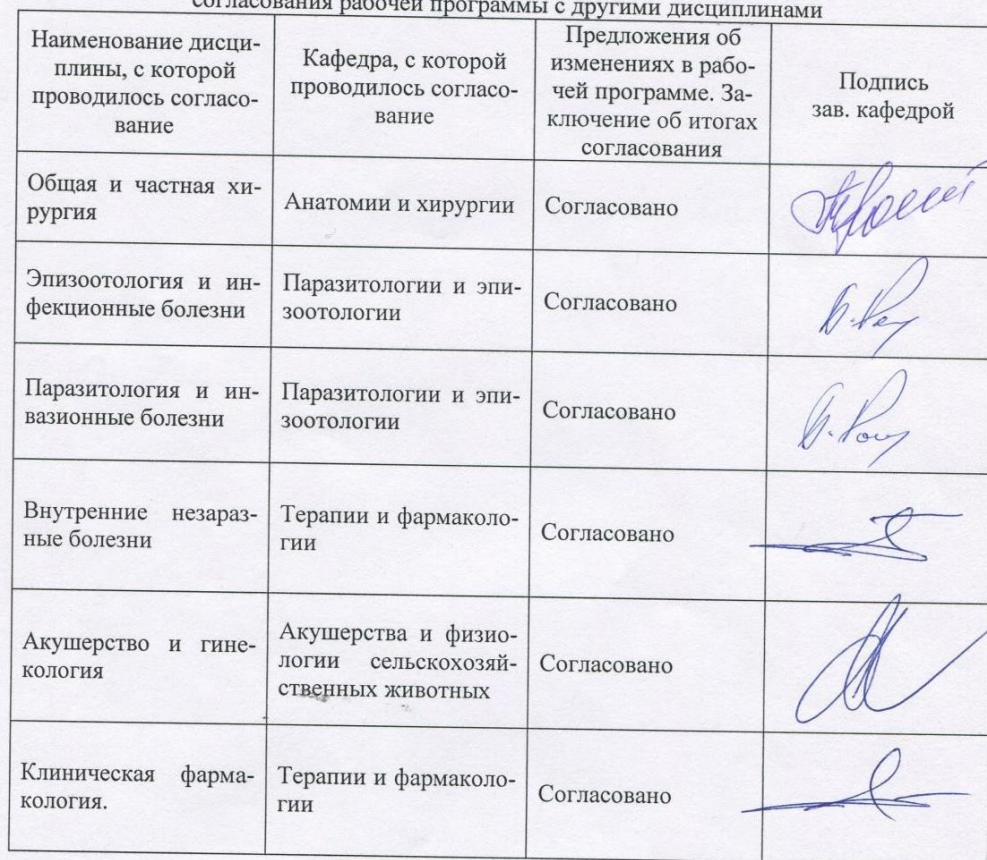 согласования рабочей программы с другими дисциплинами
Наименование дисци-
плины, с которой
проводилось согласо-
вание
Кафедра, с которой
проводилось согласо-
вание
Предложения об
изменениях в рабо-
чей программе. За-
ключение об итогах
согласования
Подпись
зав. кафедрой
Общая и частная хи-
рургия
Анатомии и хирургии
Согласовано
Эпизоотология и ин-
фекционные болезни
Паразитологии и эпи-
зоотологии
Согласовано
Паразитология и ин-
вазионные болезни
Паразитологии и эпи-
зоотологии
Согласовано
Внутренние незараз-
ные болезни
Терапии и фармаколо-
гии
Согласовано
Акушерство и гине-
кология
Акушерства и физио-
логии сельскохозяй-
ственных животных
Согласовано
Клиническая фарма-
кология.
Терапии и фармаколо-
гии
Согласовано